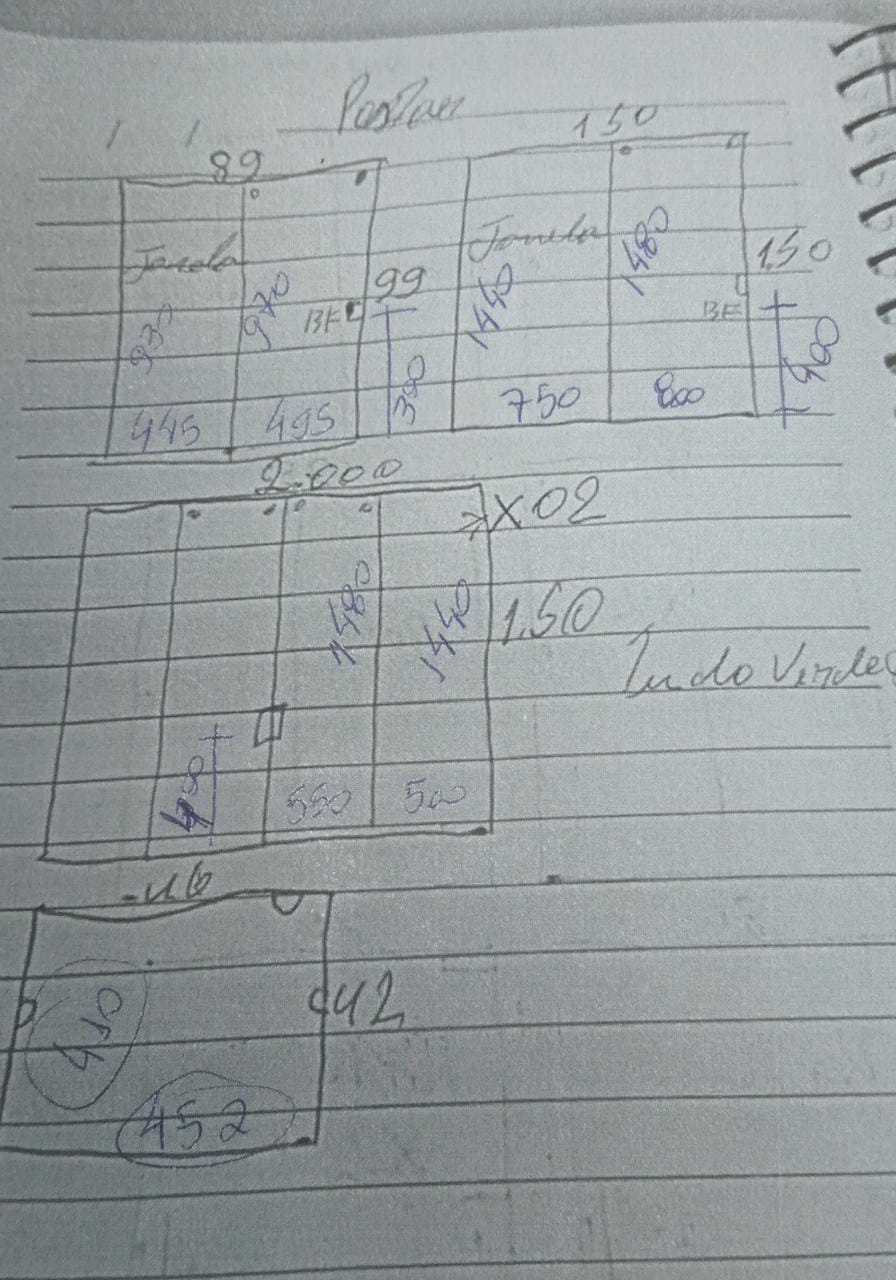 89
150
Janela
Janela
930
970
BF
99
390
445
495
1440
1480
BF
150
400
750
800
2.000
X02
1480
1440
1.50
Tudo Verde
400
550
500
46
42
410
452